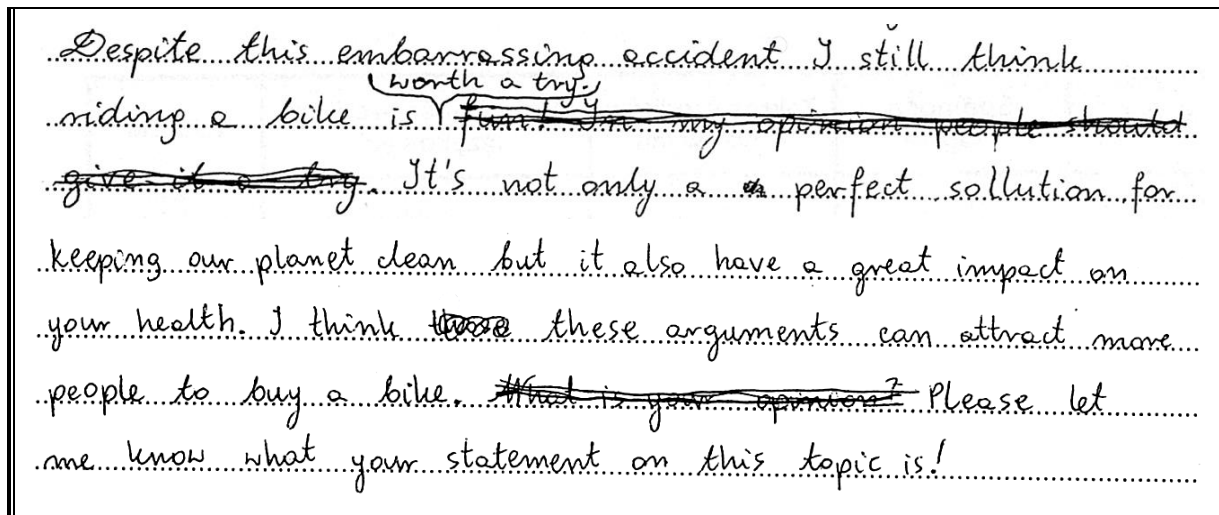 Despite this embarrassing accident I still think
worth a try.
riding a bike is fun! In my opinion people should
give it a try. It's not only a perfect sollution for
keeping our planet clean but it also have a great impact on
your health. I think those these arguments can attract more
people to buy a bike. What is your opinion? Please let
me know what your statement on this topic is!